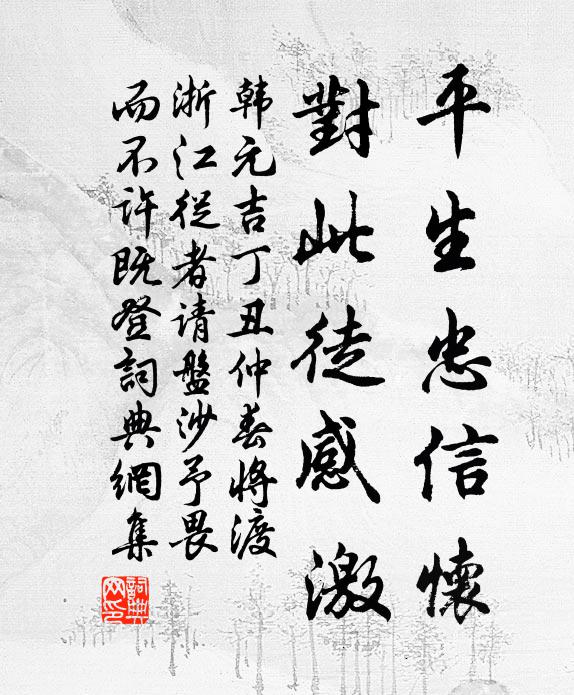 平生忠信懷
對此徒感激
韩元吉丁丑仲春将渡
浙江從者请盤沙予畏
而不许既登詞典網集
詞典网印